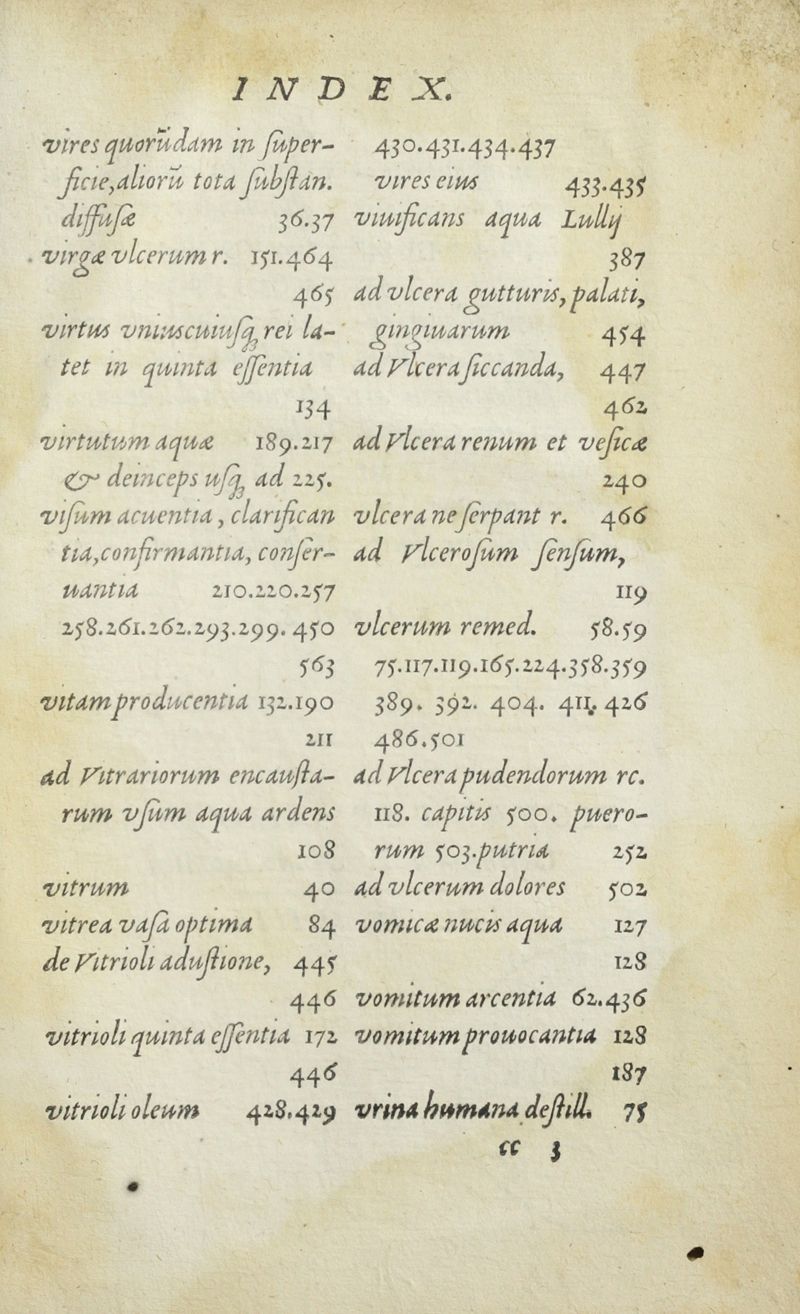 INDEX.
vires quorũdam in ſuper-
ficie,aliorũ tota ſubſtan.
diffuſæ 36.37
virgæ vlcerum r. 151.464
465
virtus vniuscuiuſq; rei la-
tet in quinta eſſentia
134
virtutum aquæ 189.217
& deinceps uſq; ad 225.
viſum acuentia, clarifican
tia,confirmantia, conſer-
uantia 210.220.257
258.261.262.293.299.450
563
vitam producentia 132.190
211
ad Vitrariorum encauſta-
rum vſum aqua ardens
108
vitrum 40
vitrea vaſa optima 84
de Vitrioli aduſtione, 445
446
vitrioli quinta eſſentia 172
446
vitrioli oleum 428.429
430.431.434.437
vires eius 433.435
viuificans aqua Lullij
387
ad vlcera gutturis, palati,
gingiuarum 454
ad Vlcera ſiccanda, 447
462
ad Vlcera renum et veſicæ
240
vlcera ne ſerpant r. 466
ad Vlceroſum ſenſum,
119
vlcerum remed. 58.59
75.117.119.165.224.358.359
389. 392. 404. 411. 426
486.501
ad Vlcera pudendorum rc.
118. capitis 500. puero-
rum 503.putria 252
ad vlcerum dolores 502
vomicæ nucis aqua 127
128
vomitum arcentia 62.436
vomitum prouocantia 128
187
vrina humana deſtill. 75
cc 3